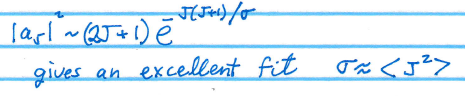 |a_J|² ~ (2J+1) e^{-J(J+1)/σ}
gives an excellent fit σ ≈ <J²>